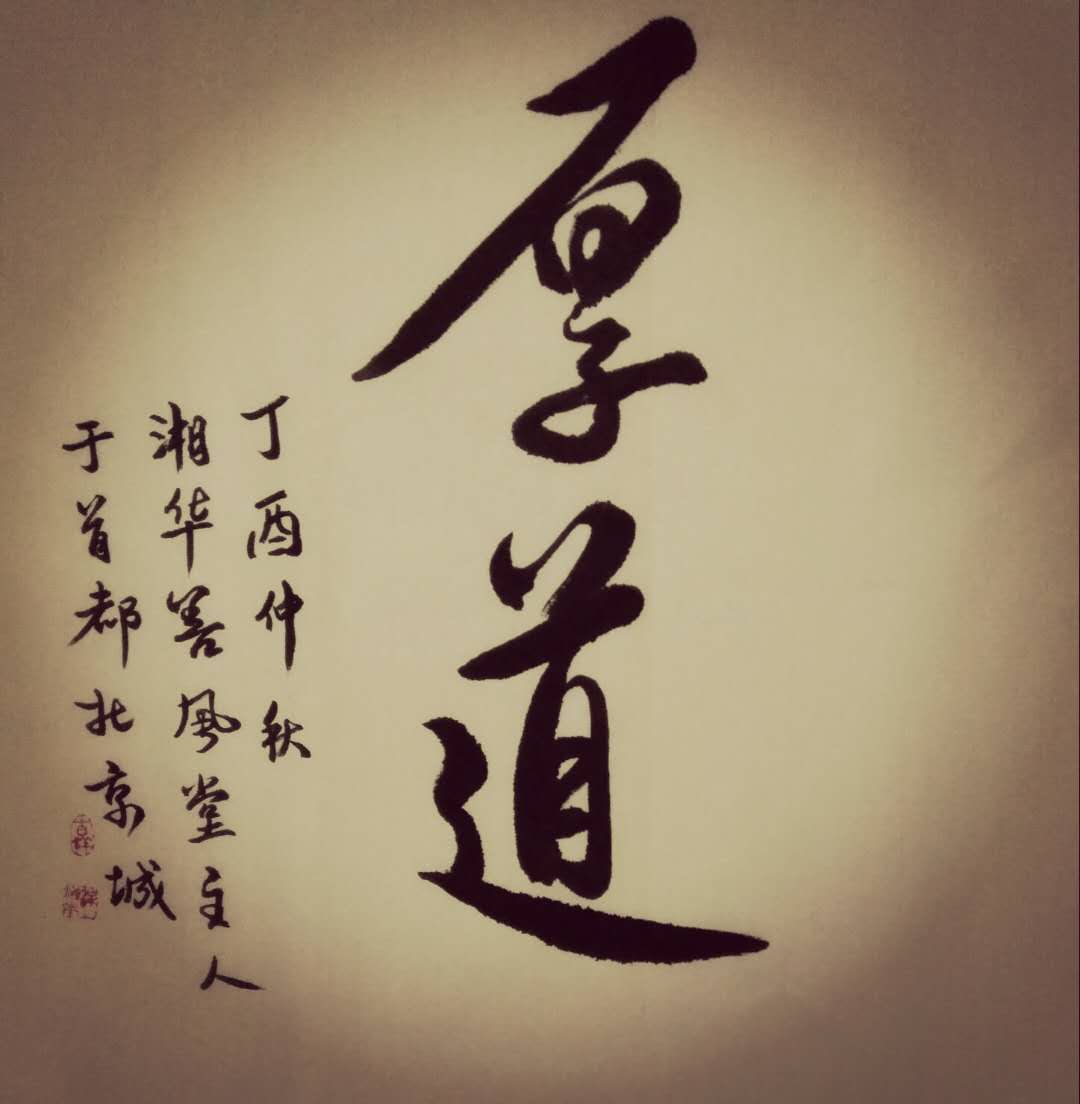 厚道
丁酉仲秋
湘华善风堂主人
于首都北京城